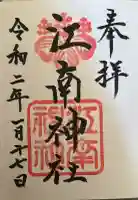 奉拝
江南神社
令和二年一月十七日
江南神社